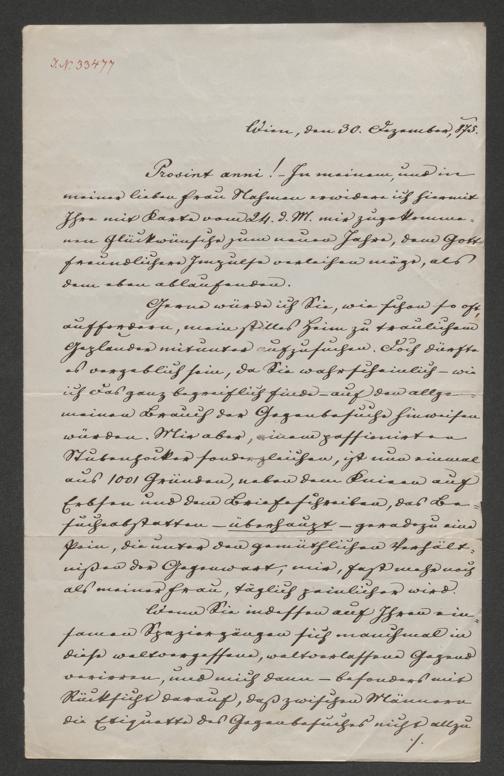 I.N. 33477
Wien, den 30. Dezember, 875.
Prosint anni! – In meinem, und in
meiner lieben Frau Nahmen erwidere ich hiermit
Ihre mit Karte vom 24. d. M. mir zugekomme-
nen Glückwünsche zum neuen Jahre, dem Gott
freundlichere Impulse verleihen möge, als
dem eben ablaufenden.
Gerne würde ich Sie, wie schon so oft,
auffordern, mein stilles Heim zu traulichem
Geplauder mitunter aufzusuchen. Doch dürfte
es vergeblich sein, da Sie wahrscheinlich – wie
ich das ganz begreiflich finde – auf den allge-
meinen Brauch der Gegenbesuche hinweisen
würden. Mir aber, einem passionirten
Stubenhocker sondergleichen, ist nun einmal
aus 1001 Gründen, neben dem Knieen auf
Erbsen und dem Briefeschreiben, das Be-
sucheabstatten – überhaupt – geradezu eine
Pein, die unter den gemüthlichen Verhält-
nißen der Gegenwart, mir, fast mehr noch
als meiner Frau, täglich peinlicher wird.
Wenn Sie indessen auf Ihren ein-
samen Spaziergängen sich manchmal in
diese weltvergessene, weltverlassene Gegend
verirren, und mich dann – besonders mit
Rücksicht darauf, daß zwischen Männern
die Etiquette des Gegenbesuches nicht allzu
./.